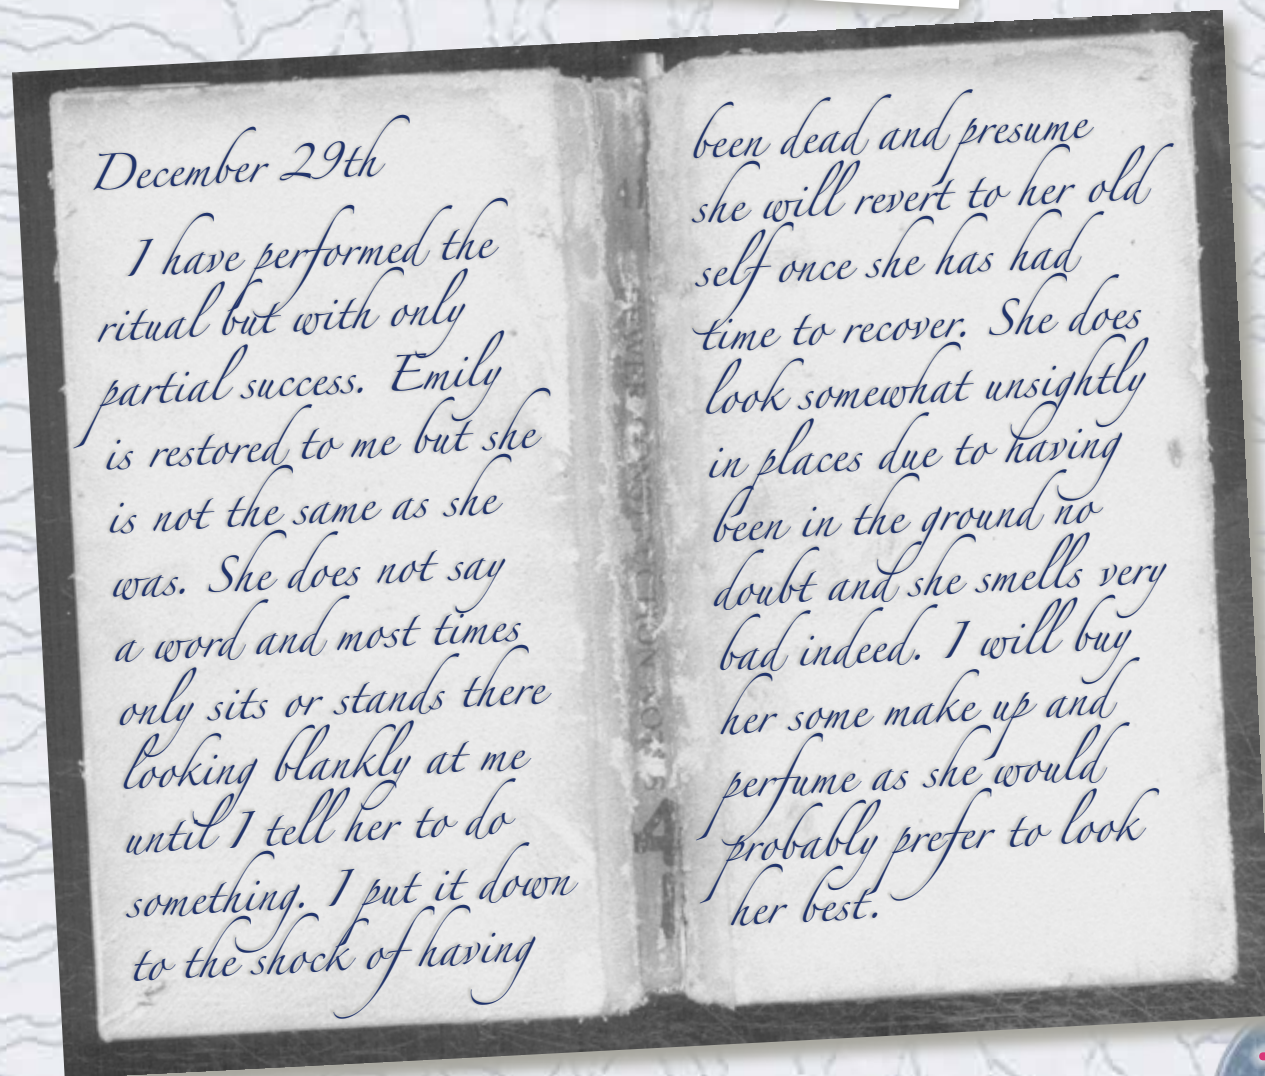 December 29th
I have performed the
ritual but with only
partial success. Emily
is restored to me but she
is not the same as she
was. She does not say
a word and most times
only sits or stands there
looking blankly at me
until I tell her to do
something. I put it down
to the shock of having
been dead and presume
she will revert to her old
self once she has had
time to recover. She does
look somewhat unsightly
in places due to having
been in the ground no
doubt and she smells very
bad indeed. I will buy
her some make up and
perfume as she would
probably prefer to look
her best.